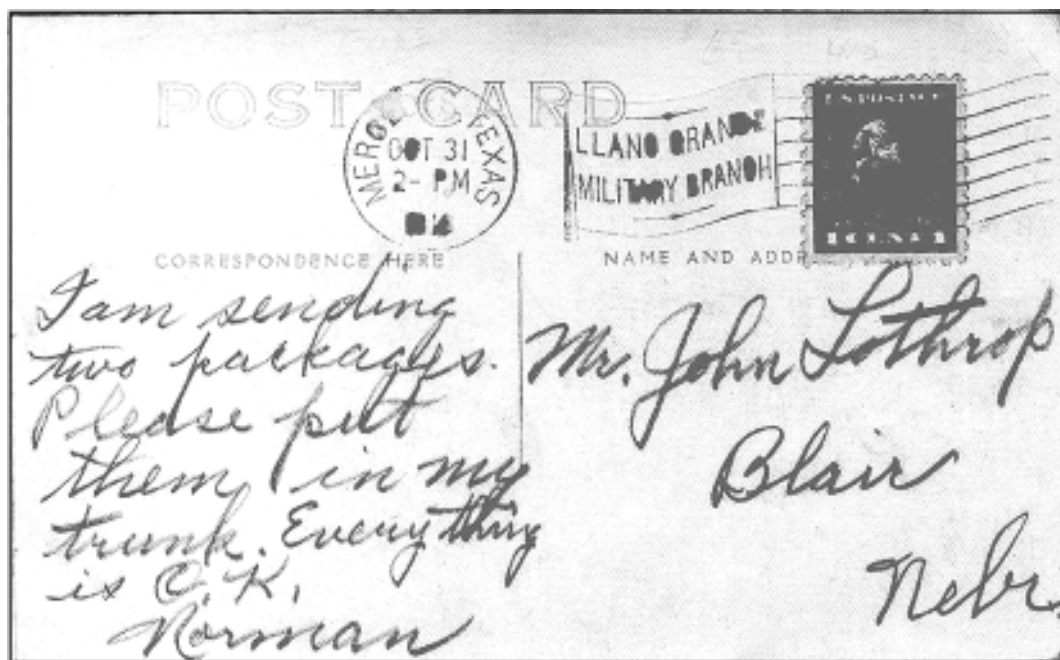 POST CARD
TEXAS
OCT 31
2- PM
LLANO GRANDE
MILITARY BRANCH
U.S. POSTAGE
CORRESPONDENCE HERE
NAME AND
I am sending
two packages.
Please put
them in my
trunk. Everything
is O.K.
Norman
Mr. John Lothrop
Blair
Nebr.